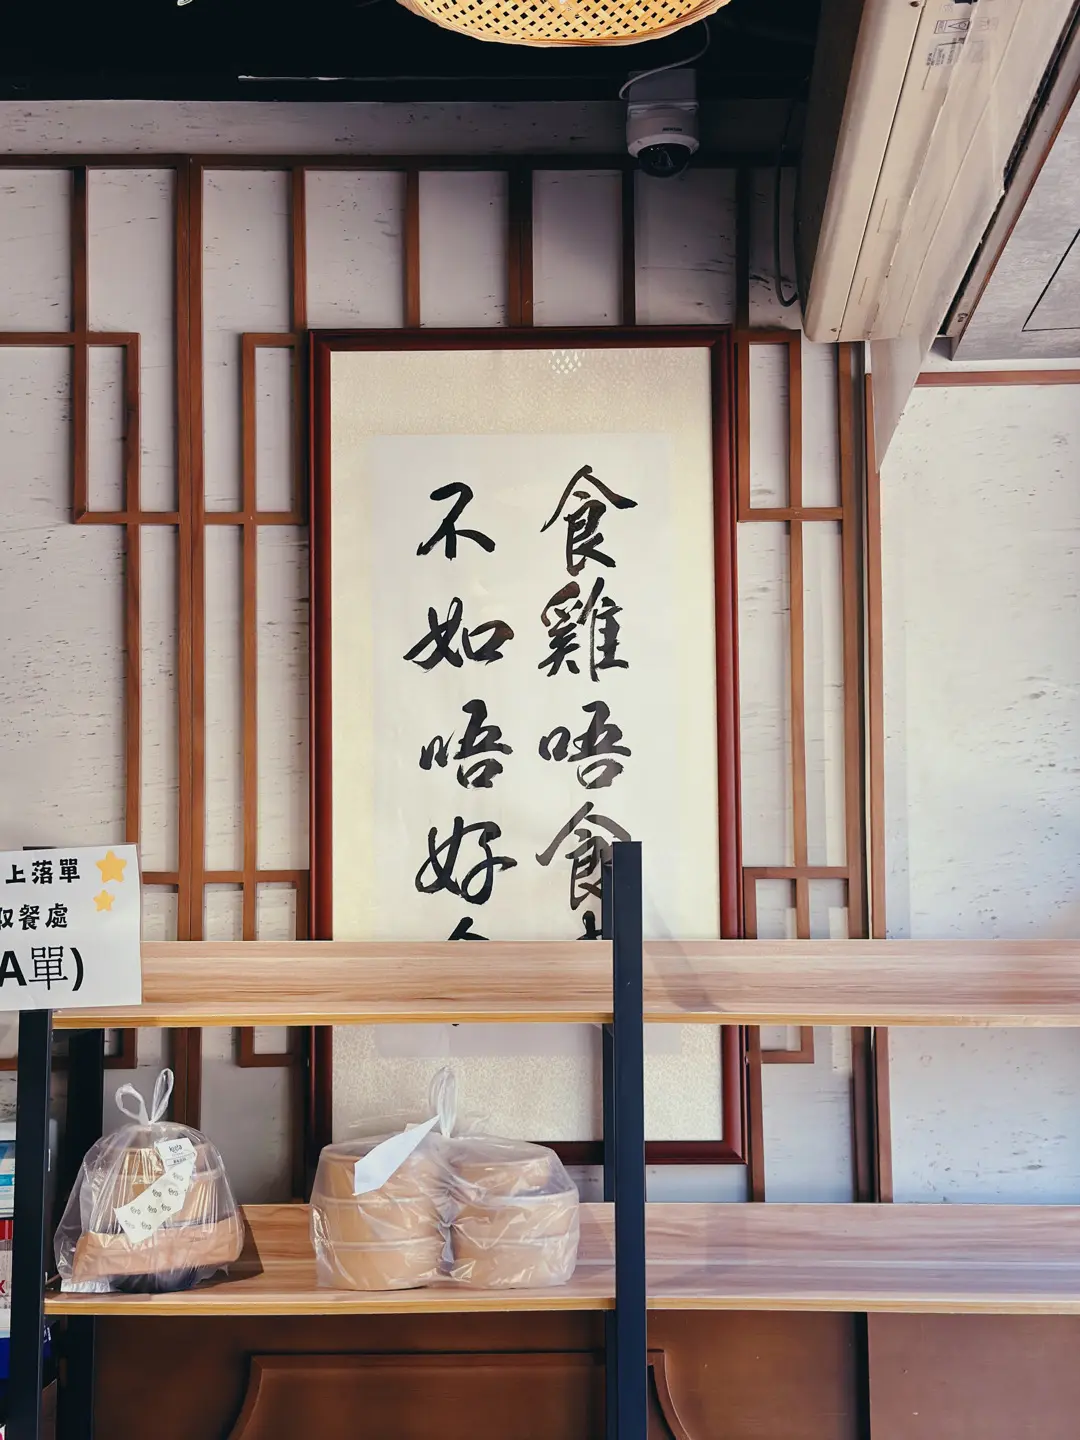 食雞唔食
不如唔好
上落單
取餐處
A單)
keeta